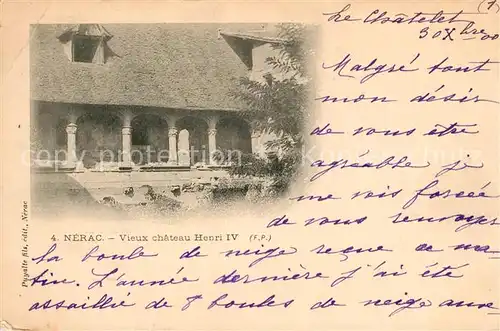 (1
Le Châtelet
30 Xbre 00
Malgré tout
mon désir
de vous être
agréable je
me vois forcée
de vous renvoyer
4. NÉRAC. – Vieux château Henri IV (F.P.)
la boule de neige reçue ce ma-
tin. L'année dernière j'ai été
assaillie de 8 boules de neige
Puyalte fils, édit., Nérac